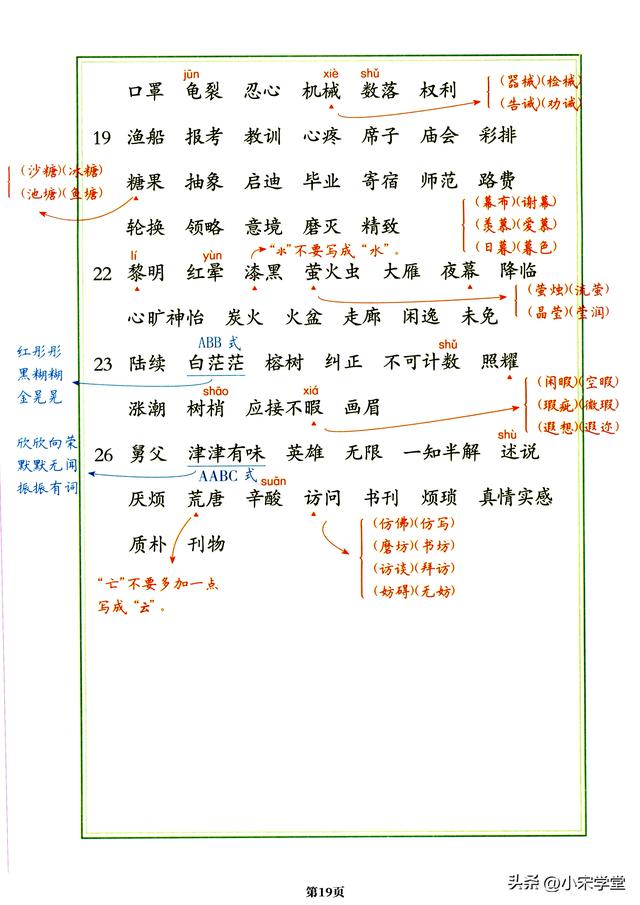 jūn xiè shǔ
口罩 龟裂 忍心 机械 数落 权利
(器械)(检械)
(告诫)(劝诫)
19 渔船 报考 教训 心疼 席子 庙会 彩排
(沙糖)(冰糖)
(池塘)(鱼塘)
糖果 抽象 启迪 毕业 寄宿 师范 路费
(幕布)(谢幕)
(羡慕)(爱慕)
(日暮)(暮色)
轮换 领略 意境 磨灭 精致
lí yùn "氺"不要写成"水"。
22 黎明 红晕 漆黑 萤火虫 大雁 夜幕 降临
(萤烛)(流萤)
(晶莹)(莹润)
心旷神怡 炭火 火盆 走廊 闲逸 未免
ABB 式 shǔ
红彤彤
黑糊糊
金晃晃
23 陆续 白茫茫 榕树 纠正 不可计数 照耀
shāo xiá
涨潮 树梢 应接不暇 画眉
(闲暇)(空暇)
(瑕疵)(微瑕)
(遐想)(遐迩)
shù
欣欣向荣
默默无闻
振振有词
26 舅父 津津有味 英雄 无限 一知半解 述说
AABC 式 suān
厌烦 荒唐 辛酸 访问 书刊 烦琐 真情实感
(仿佛)(仿写)
(磨坊)(书坊)
(访谈)(拜访)
(妨碍)(无妨)
质朴 刊物
"亡"不要多加一点
写成"云"。
第19页
头条 @小宋学堂